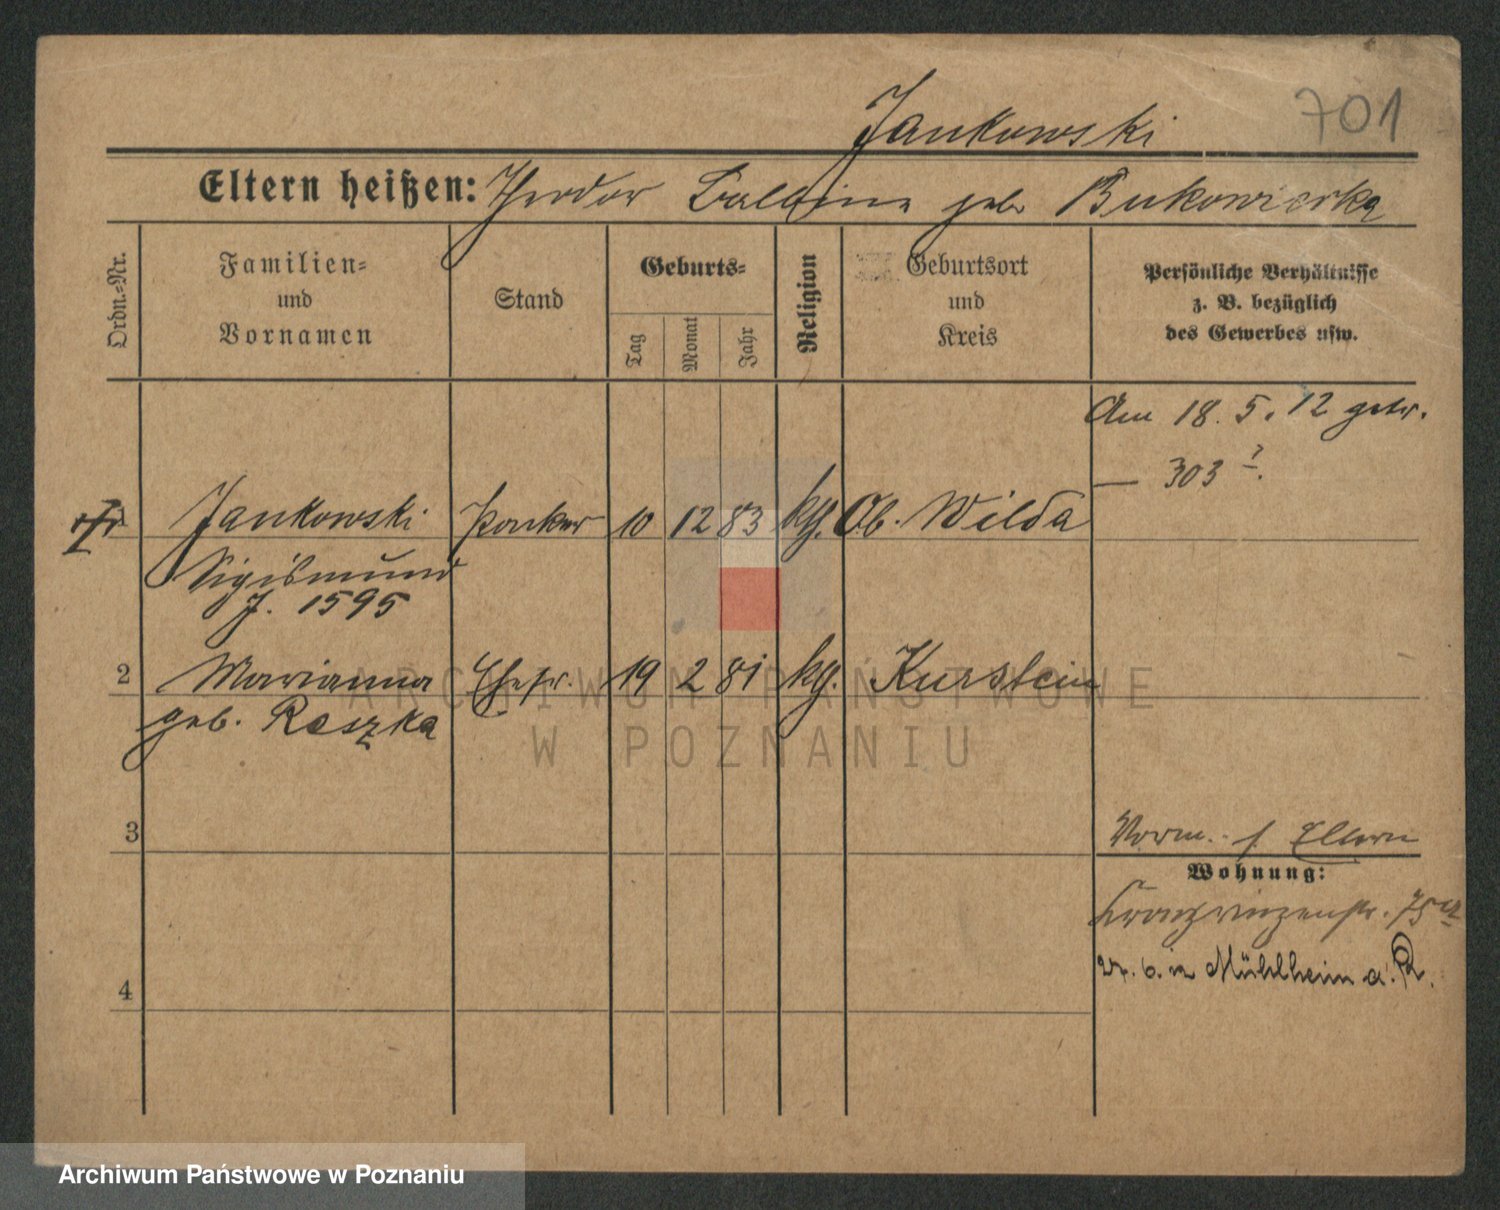 Jankowski 701
Eltern heißen: Theodor Balbina geb Bukowiecka
Ordn.-Nr.
Familien-
und
Vornamen
Stand
Geburts-
Tag
Monat
Jahr
Religion
Geburtsort
und
Kreis
Persönliche Verhältnisse
z. B. bezüglich
des Gewerbes usw.
Am 18. 5. 12 getr.
— 303
1 Jankowski 10 12 83 kg. Ob. Wilda
Sigismund
J. 1595
2 Marianna Ehefr. 19 2 81 kg. Kurstein
geb. Reszka
3
Vorm. Eltern
Wohnung:
Kronprinzenstr. 75
4
in Mühlheim a. R.
ARCHIWUM PAŃSTWOWE
W POZNANIU
Archiwum Państwowe w Poznaniu